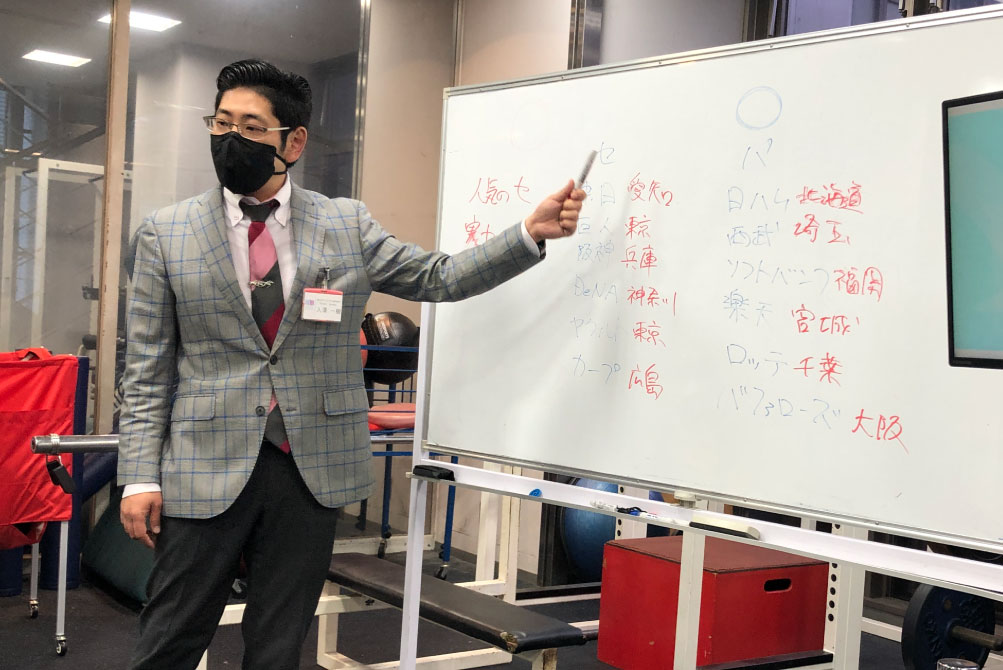 セ パ
人気のセ
日 愛知
巨人 東京
阪神 兵庫
DeNA 神奈川
ヤクルト 東京
カープ 広島
日ハム 北海道
西武 埼玉
ソフトバンク 福岡
楽天 宮城
ロッテ 千葉
バファローズ 大阪